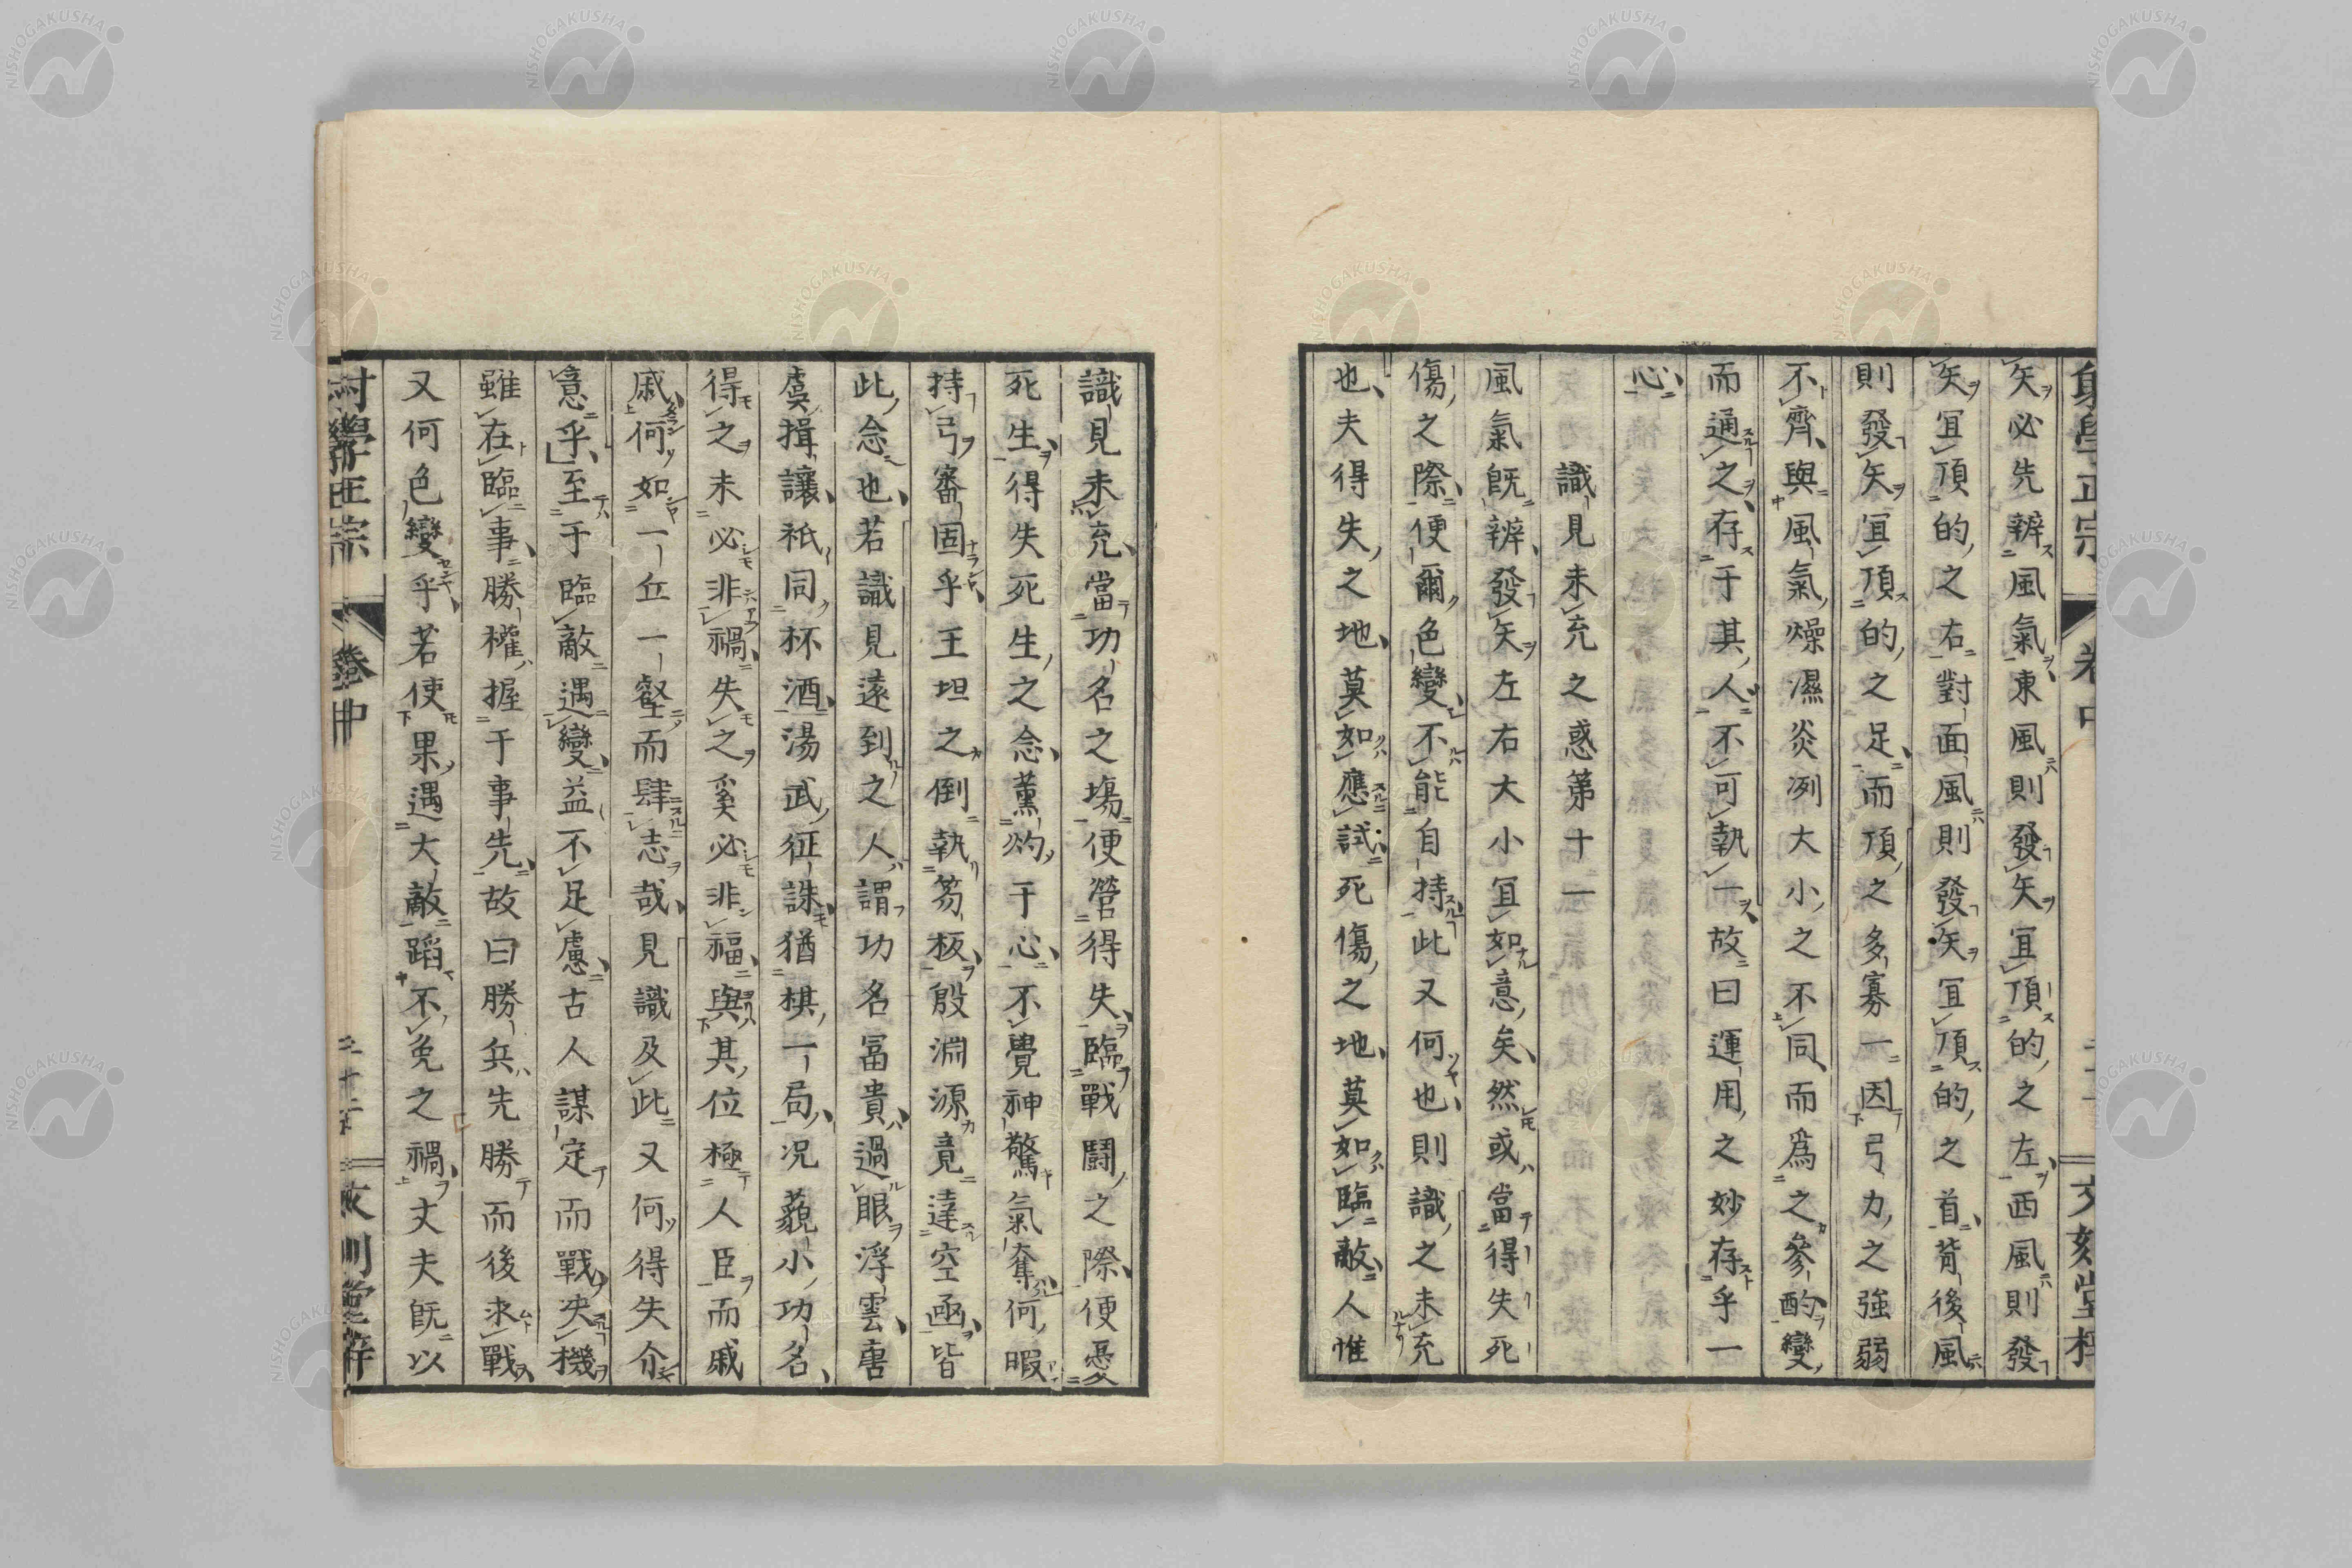 矢必先辨風氣東風則發矢宜頂的之左西風則發
矢宜頂的之右對面風則發矢宜頂的之首背後風
則發矢宜頂的之足而頂之多寡一因弓力之強弱
不齊與風氣燥濕炎冽大小之不同而爲之參酌變
而通之存于其人不可執一故曰運用之妙存乎一
心
識見未充之惑第十一
風氣既辨發矢左右大小宜如意矣然或當得失死
傷之際便爾色變不能自持此又何也則識之未充
也夫得失之地莫如應試死傷之地莫如臨敵人惟
識見未充當功名之塲便營得失臨戰鬪之際便憂
死生得失死生之念薰灼于心不覺神驚氣奪何暇
持弓審固乎王坦之倒執笏板殷淵源竟達空函皆
此念也若識見遠到之人謂功名冨貴過眼浮雲唐
虞揖讓祇同杯酒湯武征誅猶棋一局况藐小功名
得之未必非禍失之奚必非福與其位極人臣而戚
戚何如一丘一壑而肆志哉見識及此又何得失介
意乎至于臨敵遇變益不足慮古人謀定而戰决機
雖在臨事勝權握于事先故曰勝兵先勝而後求戰
又何色變乎若使果遇大敵蹈不免之禍丈夫既以
射學正宗
卷中
NISHOGAKUSHA